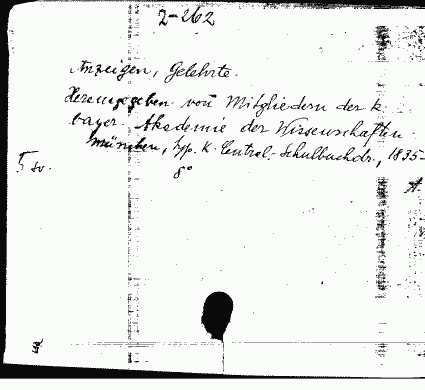 2-262
Anzeigen, Gelehrte.
Herausgegeben von Mitgliedern der k.
bayer. Akademie der Wissenschaften
München, typ. K. Central-Schulbuchdr., 1835-
8°